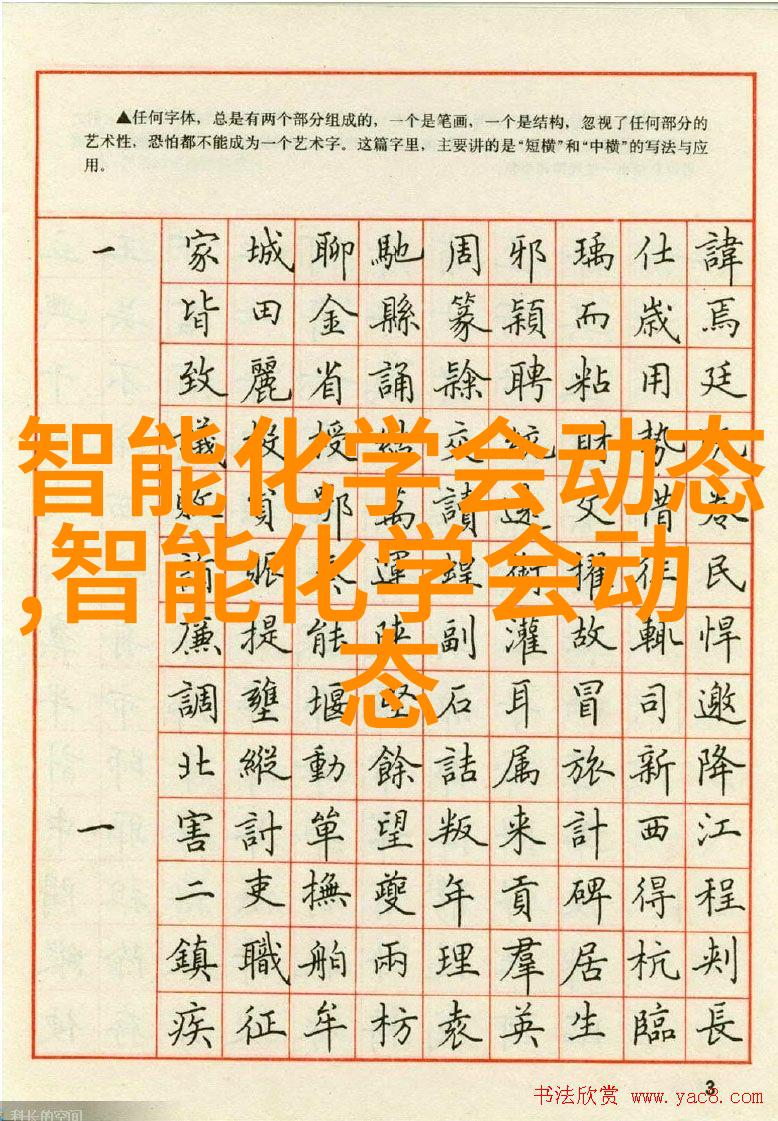 ▲任何字体，总是有两个部分组成的，一个是笔画，一个是结构，忽视了任何部分的
艺术性，恐怕都不能成为一个艺术字。这篇字里，主要讲的是“短横”和“中横”的写法与应
用。
一 家 城 聊 馳 周 邪 瑀 仕 諱
皆 田 金 縣 篆 穎 而 歲 焉
致 麗 省 誦 聘 粘 用 廷
智能化学会动态
,智能化学会动
态
議 授 交 統 財 勢
鄂 萬 讀 文 借
運 術 擢 民
廉 提 能 陸 副 灌 故 輒 悍
調 壅 堰 堅 石 耳 冒 司 邀
北 縱 動 餘 詰 属 旅 新 降
一 害 討 單 望 叛 来 計 西 江
二 吏 撫 夔 年 貢 碑 得 程
鎮 職 舶 兩 理 羣 居 杭 刺
疾 征 牟 枋 袁 英 生 臨 長
3
书法欣赏 www.yac8.com
科长的空间